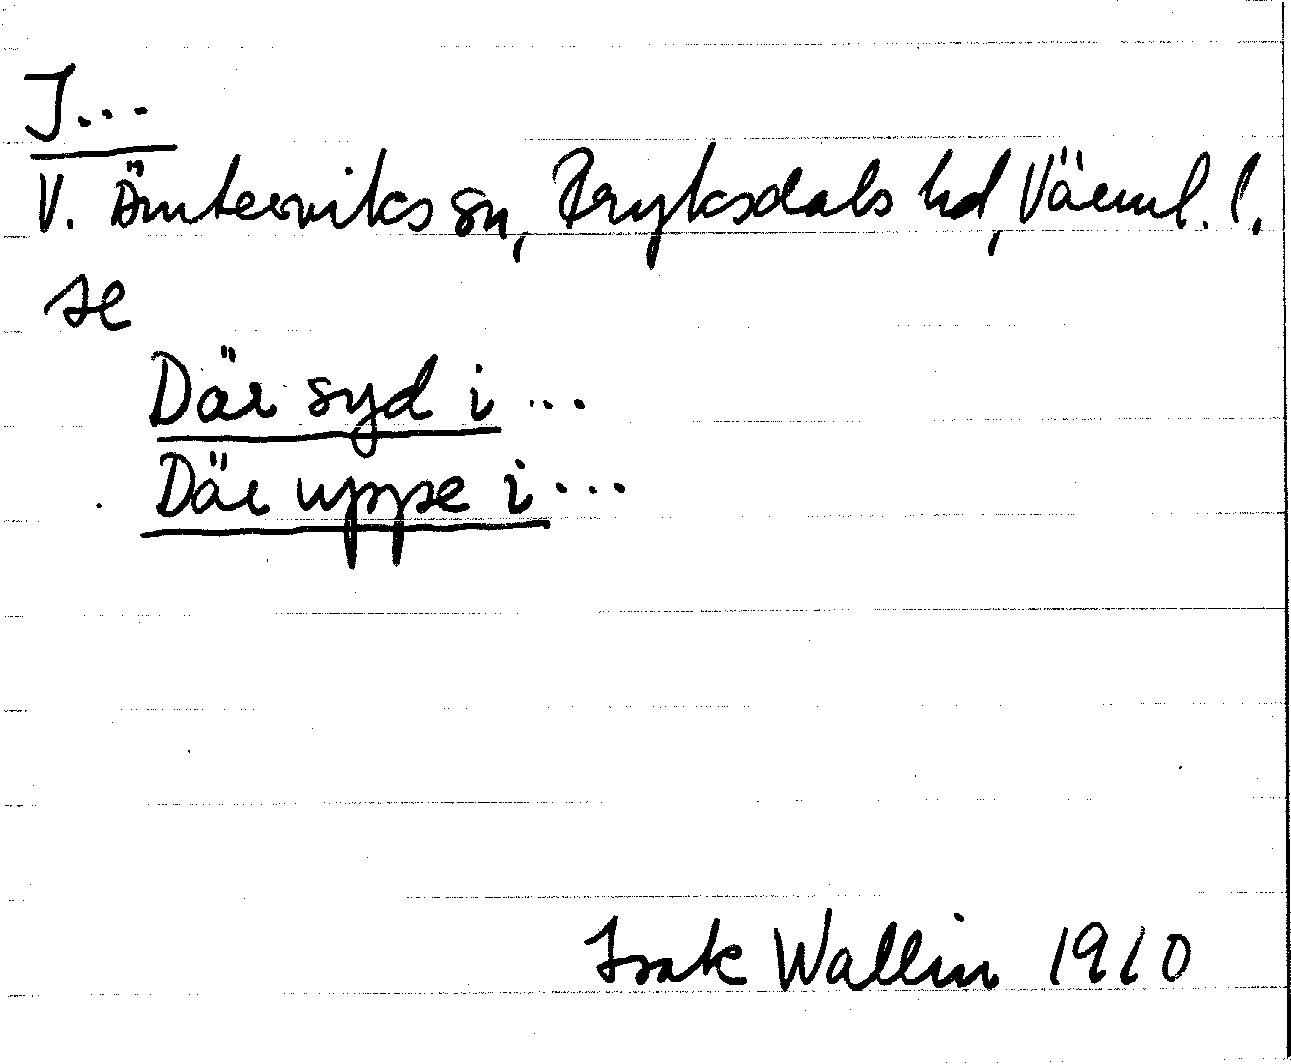 I...
V. Ämterviks sn, Fryksdals hd, Värml. l.
se
Där syd i ...
Där uppe i ...
Isak Wallin 1910